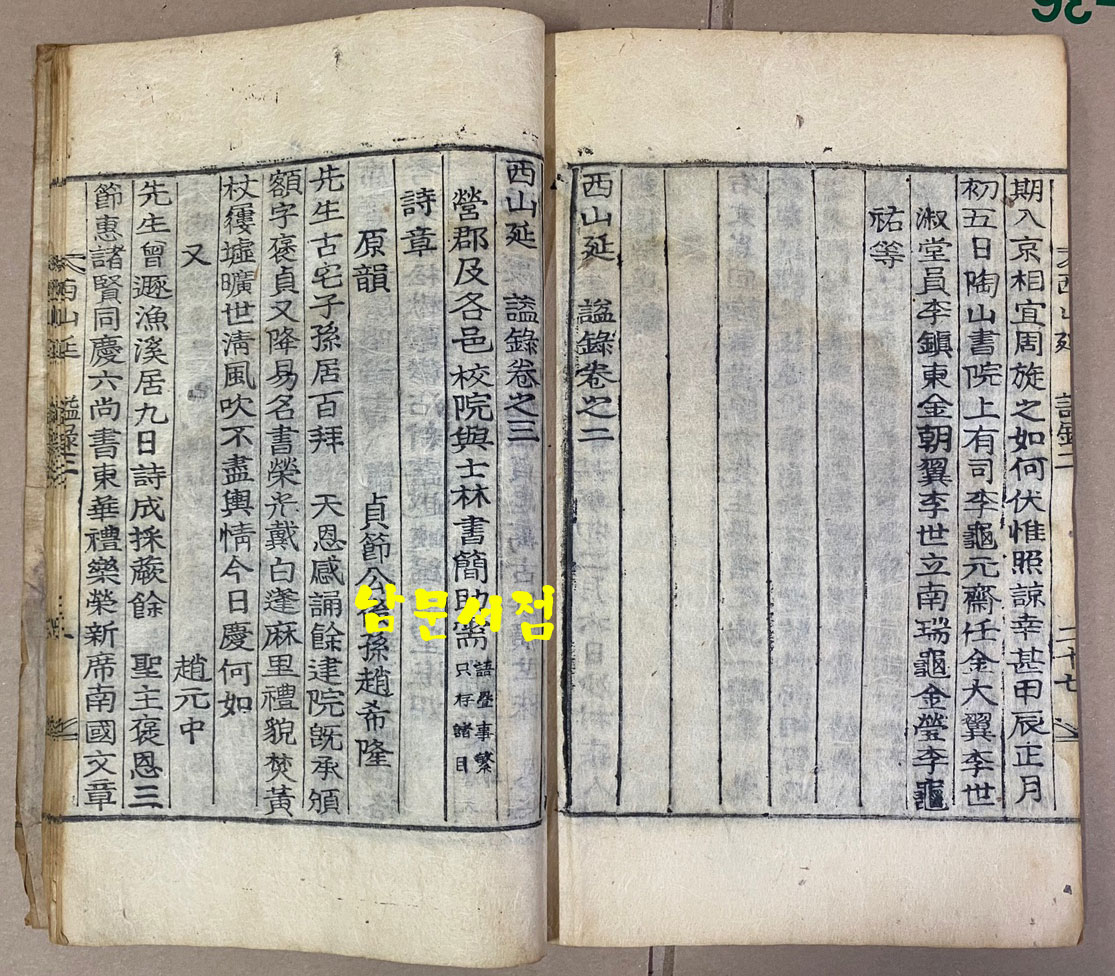 期入京相宜周旋之如何伏惟照諒幸甚甲辰正月
初五日陶山書院上有司李龜元齋任金大翼李世
淑堂員李鎭東金朝翼李世立南瑞龜金瑩李龜
祐等
西山延 諡錄卷之二
西山延 諡錄卷之三
營郡及各邑校院與士林書簡助需 語疊事繁 只存諸目
詩章
原韻 貞節公後孫趙希隆
先生古宅子孫居百拜 天恩感誦餘建院旣承頒
額字褒貞又降易名書榮光戴白蓬麻里禮貌焚黃
杖屨墟曠世淸風吹不盡輿情今日慶何如
又 趙元中
先生曾遯漁溪居九日詩成採蕨餘 聖主褒恩三
節惠諸賢同慶六尙書東華禮樂榮新席南國文章
西山延 諡錄二
二十七
남문서점